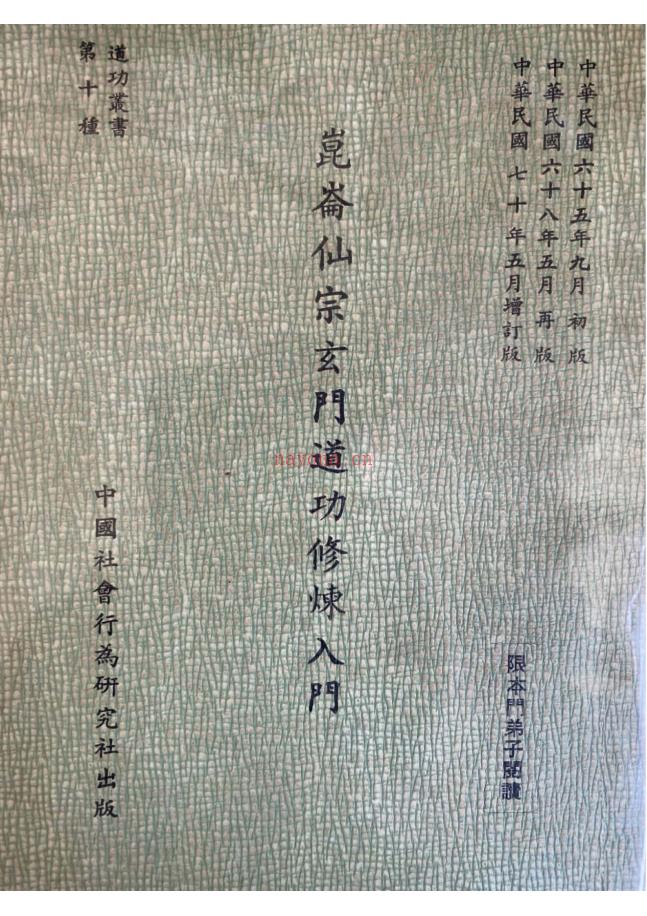 中華民國六十五年九月初版
中華民國六十八年五月再版
中華民國七十年五月增訂版
限本門弟子閱讀
崑崙仙宗玄門道功修煉入門
道功叢書
第十種
中國社會行為研究社出版